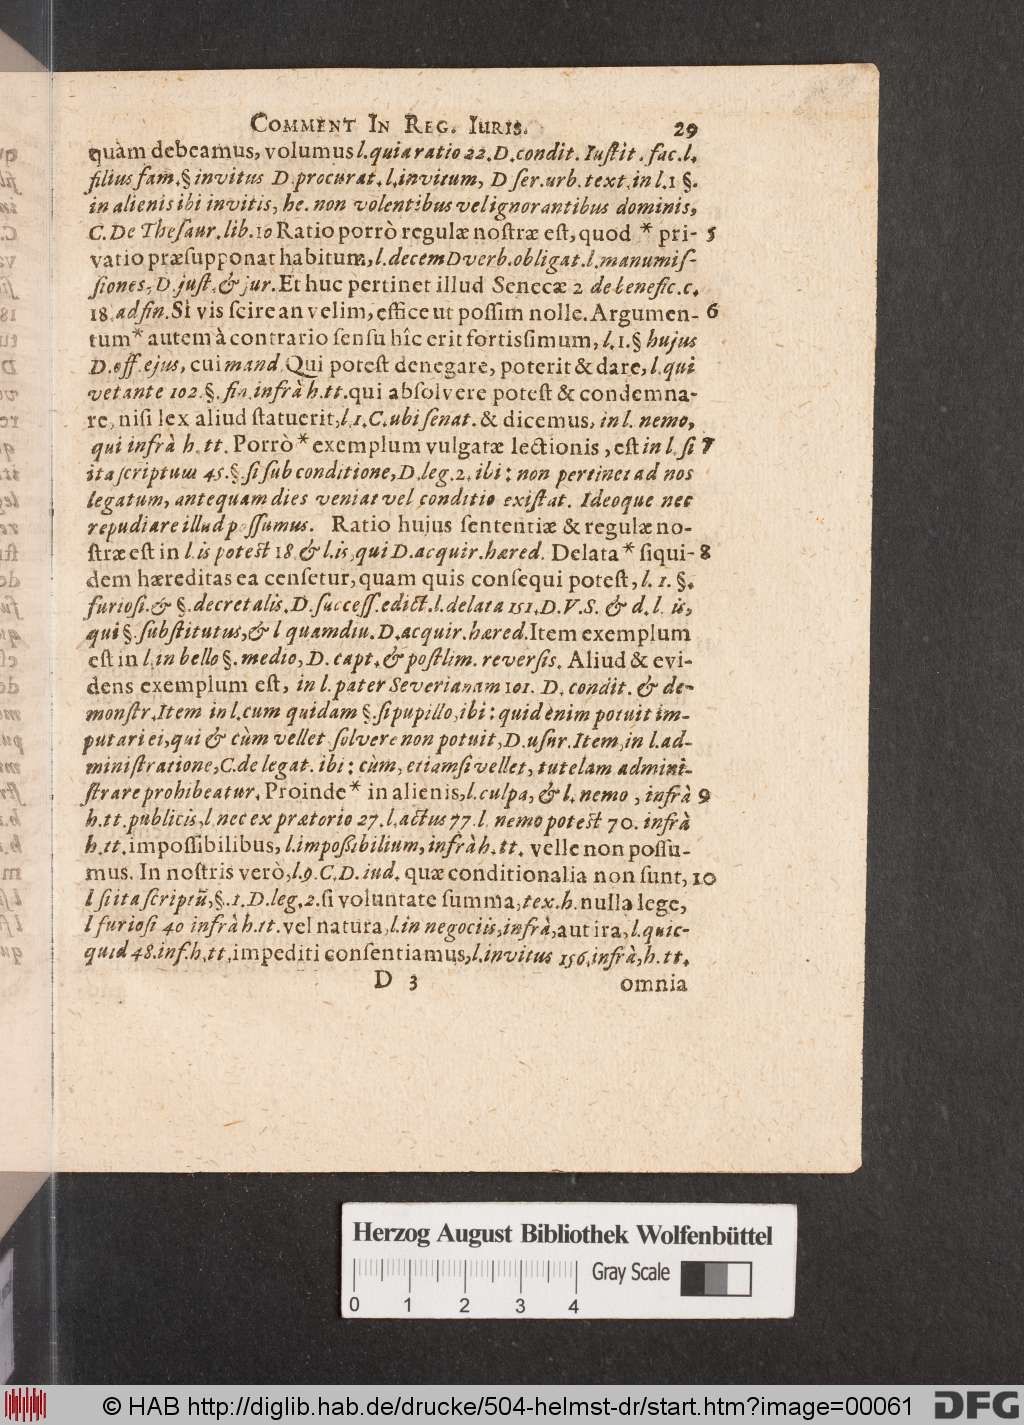 COMMENT IN REG. IURIS. 29
quàm debeamus, volumus l. quia ratio 22. D. condit. Iustit. fac. l.
filius fam. § invitus D procurat. l. invitum, D ser. urb. text. in l. 1 §.
in alienis ibi invitis, he. non volentibus vel ignorantibus dominis,
C. De Thesaur. lib. 10 Ratio porrò regulæ nostræ est, quod * pri- 5
vatio præsupponat habitum, l. decem D verb. obligat. l. manumis-
siones, D. just. & jur. Et huc pertinet illud Senecæ 2 de benefic. c.
18. ad fin. Si vis scire an velim, effice ut possim nolle. Argumen- 6
tum * autem à contrario sensu hîc erit fortissimum, l. 1. § hujus
D. off. ejus, cui mand. Qui potest denegare, poterit & dare, l. qui
vetante 102. §. fin. infrà h. tt. qui absolvere potest & condemna-
re, nisi lex aliud statuerit, l. 1. C. ubi senat. & dicemus, in l. nemo,
qui infrà h. tt. Porrò * exemplum vulgatæ lectionis, est in l. si 7
ita scriptum 45. §. si sub conditione, D. leg. 2. ibi: non pertinet ad nos
legatum, antequam dies veniat vel conditio existat. Ideoque nec
repudiare illud possumus. Ratio hujus sententiæ & regulæ no-
stræ est in l. is potest 18. & l. is, qui D. acquir. hæred. Delata * siqui- 8
dem hæreditas ea censetur, quam quis consequi potest, l. 1. §.
furiosi. & §. decretalis. D. success. edict. l. delata 151. D. V. S. & d. l. is,
qui §. substitutus, & l quamdiu. D. acquir. hæred. Item exemplum
est in l. in bello §. medio, D. capt. & postlim. reversis. Aliud & evi-
dens exemplum est, in l. pater Severianam 101. D. condit. & de-
monstr. Item in l. cum quidam §. si pupillo, ibi: quid enim potuit im-
putari ei, qui & cùm vellet, solvere non potuit, D. usur. Item, in l. ad-
ministratione, C. de legat. ibi: cùm, etiamsi vellet, tutelam admini-
strare prohibeatur. Proinde * in alienis, l. culpa, & l. nemo, infrà 9
h. tt. publicis, l. nec ex prætorio 27. l. actus 77. l. nemo potest 70. infrà
h. tt. impossibilibus, l. impossibilium, infrà h. tt. velle non possu-
mus. In nostris verò, l. 9. C. D. iud. quæ conditionalia non sunt, 10
l si ita scriptũ, §. 1. D. leg. 2. si voluntate summa, tex. h. nulla lege,
l furiosi 40 infrà h. tt. vel natura, l. in negociis, infrà, aut ira, l. quic-
quid 48. inf. h. tt. impediti consentiamus, l. invitus 156. infrà, h. tt.
D 3 omnia
Herzog August Bibliothek Wolfenbüttel
Gray Scale
0 1 2 3 4
© HAB http://diglib.hab.de/drucke/504-helmst-dr/start.htm?image=00061
DFG